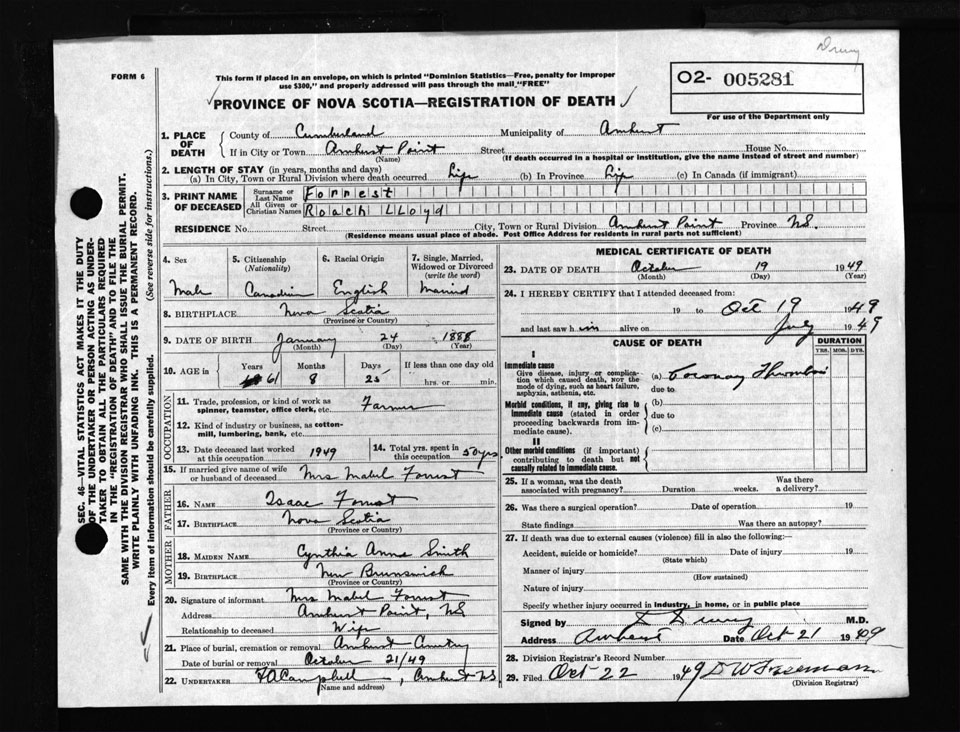 Drury
FORM 6
This form if placed in an envelope, on which is printed "Dominion Statistics—Free, penalty for improper
use $300," and properly addressed will pass through the mail "FREE"
O2- 005281
For use of the Department only
PROVINCE OF NOVA SCOTIA—REGISTRATION OF DEATH
1. PLACE OF DEATH
County of Cumberland Municipality of Amherst
If in City or Town Amherst Point Street House No.
(Name) (If death occurred in a hospital or institution, give the name instead of street and number)
2. LENGTH OF STAY (in years, months and days)
(a) In City, Town or Rural Division where death occurred Life (b) In Province Life (c) In Canada (if immigrant)
3. PRINT NAME OF DECEASED
Surname or Last Name Forrest
All Given or Christian Names Roach LLoyd
RESIDENCE No. Street City, Town or Rural Division Amherst Point Province N.S.
(Residence means usual place of abode. Post Office Address for residents in rural parts not sufficient)
4. Sex
Male
5. Citizenship
(Nationality)
Canadian
6. Racial Origin
English
7. Single, Married, Widowed or Divorced
(write the word)
Married
8. BIRTHPLACE Nova Scotia
(Province or Country)
9. DATE OF BIRTH January 24 1888
(Month) (Day) (Year)
10. AGE in
Years Months Days If less than one day old
61 8 25 hrs. or min.
OCCUPATION
11. Trade, profession, or kind of work as
spinner, teamster, office clerk, etc. Farmer
12. Kind of industry or business, as cotton-
mill, lumbering, bank, etc.
13. Date deceased last worked
at this occupation 1949
14. Total yrs. spent in
this occupation 50 yrs.
15. If married give name of wife
or husband of deceased Mrs Mabel Forrest
FATHER
16. NAME Isaac Forrest
17. BIRTHPLACE Nova Scotia
(Province or Country)
MOTHER
18. MAIDEN NAME Cynthia Anna Smith
19. BIRTHPLACE New Brunswick
(Province or Country)
20. Signature of informant Mrs Mabel Forrest
Address Amherst Point, NS
Relationship to deceased Wife
21. Place of burial, cremation or removal Amherst - Cemetry
Date of burial or removal October 21/49
22. UNDERTAKER F A Campbell, Amherst NS
(Name and address)
MEDICAL CERTIFICATE OF DEATH
23. DATE OF DEATH October 19 1949
(Month) (Day) (Year)
24. I HEREBY CERTIFY that I attended deceased from:
19 to Oct 19 1949
and last saw h im alive on July 1949
CAUSE OF DEATH
DURATION
YRS. MOS. DYS.
I
Immediate cause
Give disease, injury or complica-
tion which caused death, NOT the
mode of dying, such as heart failure,
asphyxia, asthenia, etc.
(a) Coronary Thrombosis
due to
Morbid conditions, if any, giving rise to
immediate cause (stated in order
proceeding backwards from im-
mediate cause).
(b)
due to
(c)
II
Other morbid conditions (if important)
contributing to death but not
causally related to immediate cause.
25. If a woman, was the death
associated with pregnancy? Duration weeks. Was there
a delivery?
26. Was there a surgical operation? Date of operation 19
State findings Was there an autopsy?
27. If death was due to external causes (violence) fill in also the following:—
Accident, suicide or homicide? Date of injury 19
(State which)
Manner of injury
(How sustained)
Nature of injury
Specify whether injury occurred in industry, in home, or in public place
Signed by Drury M.D.
Address Amherst Date Oct 21 1949
28. Division Registrar's Record Number
29. Filed Oct 22 1949 D W Freeman
(Division Registrar)
SEC. 46—VITAL STATISTICS ACT MAKES IT THE DUTY
OF THE UNDERTAKER OR PERSON ACTING AS UNDER-
TAKER TO OBTAIN ALL THE PARTICULARS REQUIRED
IN THE "REGISTRATION OF DEATH" AND TO FILE THE
SAME WITH THE DIVISION REGISTRAR WHO SHALL ISSUE THE BURIAL PERMIT.
WRITE PLAINLY WITH UNFADING INK. THIS IS A PERMANENT RECORD.
Every item of information should be carefully supplied. (See reverse side for instructions.)